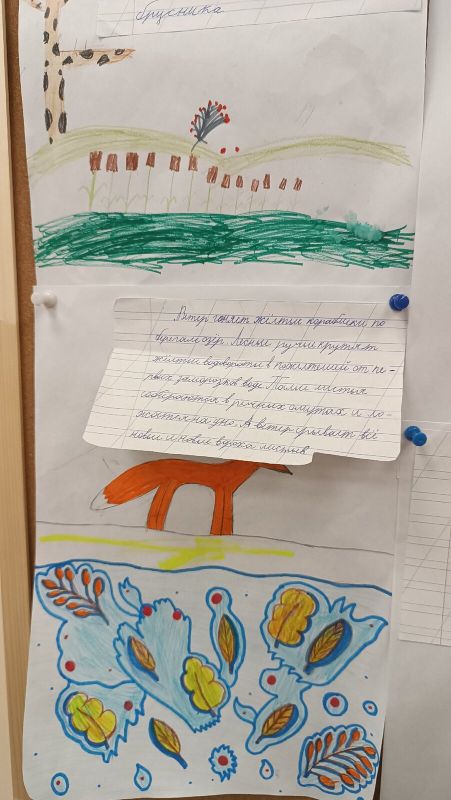 брусника
Ветер гоняет жёлтые кораблики по
берегам озёр. Лесные ручьи крутят
жёлтые водовороты в пожелтевшей от пе-
рвых заморозков воде. Толпы листьев
собираются в речных омутах и ло-
жатся на дно. А ветер срывает всё
новые и новые вороха листьев.